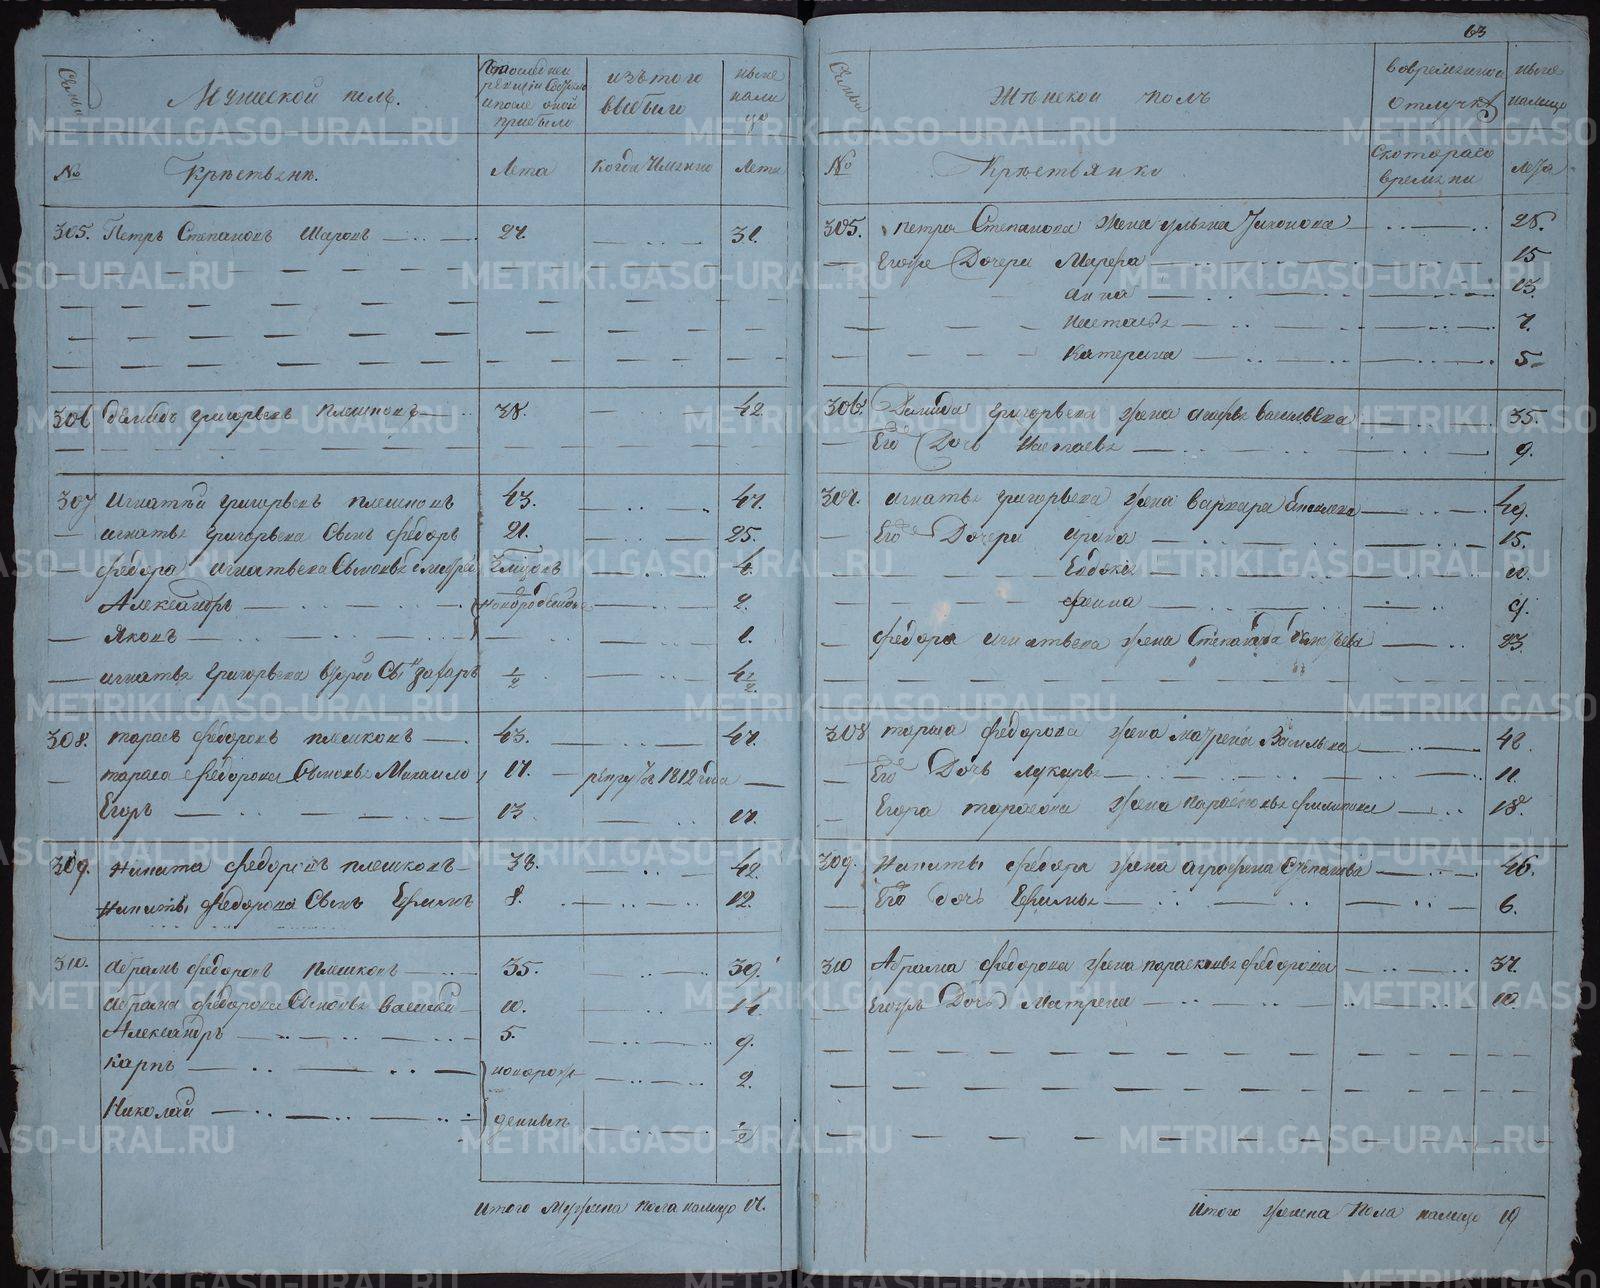 METRIKI.GASO-URAL.RU
Семьи
Мужеской полъ.
По последней
ревизии Состояло
и после оной
прибыло
изътого
выбыло
ныне
нали
цо
№
Крестьяне.
Лета
когда имянно
Лета
305. Петръ Степановъ Шаровъ 27. 31.
306 Демидъ григорьевъ плешковъ 38. 42.
307 Игнатей григорьевъ плешковъ 43. 47.
игнатья григорьева Сынъ федоръ 21. 25.
федора игнатьева Сыновья 4.
Александръ новорожденные 2.
Яковъ 1.
игнатья григорьева второй Сынъ захаръ ½ 4½.
308. тарасъ федоровъ плешковъ 43. 47.
тараса федорова Сыновья Михайло 17. рекрутъ 1812 года
Егоръ 13. 17.
309. Никита федоровъ плешковъ 38. 42.
Никиты федорова Сынъ Ефимъ 8. 12.
310. Абрамъ федоровъ плешковъ 35. 39.
Абрама федорова Сыновья Василей 10. 14.
Александръ 5. 9.
Карпъ новорож 2.
Николай денные ½
Итого Мужска пола налицо 17.
63
Семьи
Женской полъ
вовременной
Отлучке
ныне
налицо
№
Крестьянки
Скотораго
времени
лета
305. петра Степанова жена ульяна 28.
Егоже Дочери Марфа 15
Анна 13.
Настасья 7.
Катерина 5
306. Демида григорьева жена васильева 35.
Его Дочь Настасья 9.
307. игнатья григорьева жена варвара 49.
Его Дочери ирина 15.
Евдокия 10.
9.
федора игнатьева жена Степанида 23.
308 тараса федорова жена Матрена Васильева 48.
Его Дочь лукерья 11.
Егора тарасова жена парасковья филипова 18.
309. Никиты федорова жена Агрофена Степанова 46.
Его дочь Ефимья 6.
310 Абрама федорова жена парасковья федорова 37.
Егоже Дочь Матрена 10.
Итого женска пола налицо 19